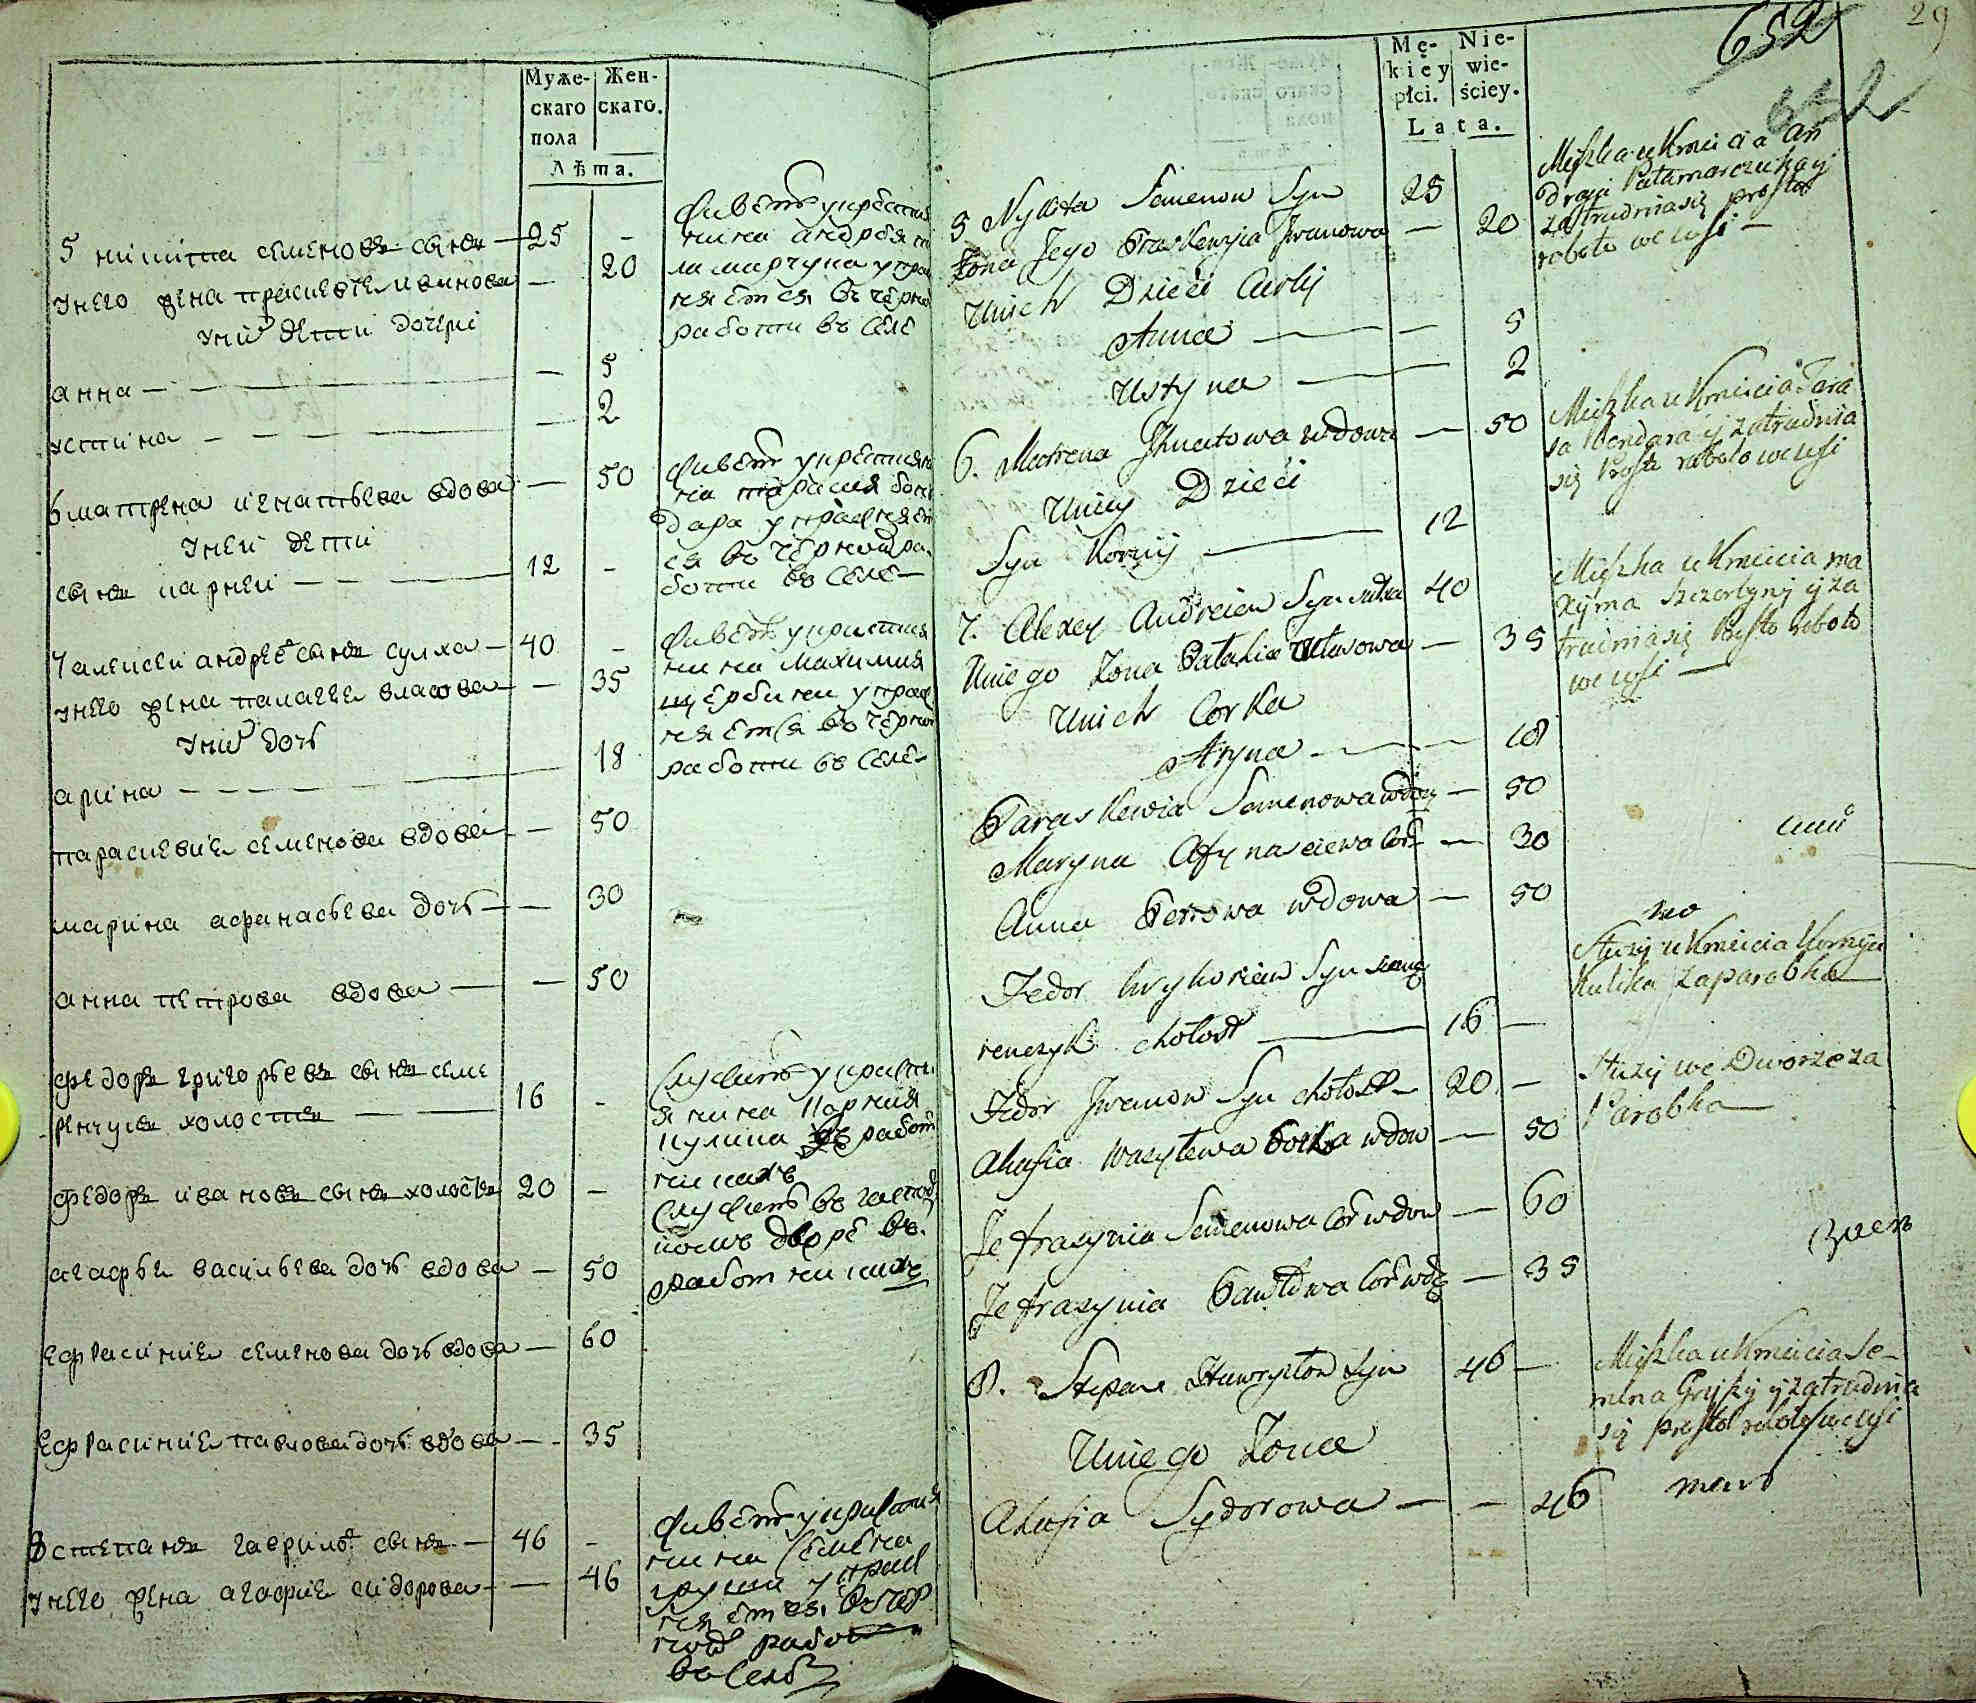 Муже-
скаго
пола
Жен-
скаго.
Лѣта.
5 никита семеновъ сынъ — 25 -
унего жена прасковея иванова — 20
уних дети дочери
анна — — 5
устина — — 2
6 матрена игнатьева вдова — 50
уней дети
сынъ карней — 12 -
7 алексей андреев сынъ сулжа — 40 -
унего жена палагея власова — 35
уних дочь
арина — 18
параскевия семенова вдова — 50
марина афанасьева дочь — — 30
анна петрова вдова — — 50
федоръ григорьевъ сынъ семе
ренчукъ холостъ — 16 -
федоръ ивановъ сынъ холостъ 20 -
агафья васильева дочь вдова — 50
ефрасиния семенова дочь вдова — 60
ефрасиния павлова дочь вдова — 35
8 степанъ гаврилов сынъ — 46 -
унего жена агафия сидорова — — 46
живетъ укрестья
нина андрея па
ламарчука упраж
няется въ черной
работи въ селе
живетъ укрестьян
на тараса бон
дара упражняет
ся въ черной ра-
боти въ селе —
живетъ укрестья
нина максима
щербини упраж
няется въ черной
работи въ селе —
служитъ укрестьи
янина Корнея
кулика въ работ
никахъ
служитъ въ господ
скомъ дворе въ
работникахъ
живетъ укрестья
нина семена
грушки упраж
няется въ чер
ной работи
въ селе
652
652
29
Mę-
kiéy
płci.
Nie-
wie-
ściey.
Lata.
5 Nykita Semenow Syn 25
Żona Jego Praskewyia Iwanowa — 20
Unich Dzieci Curki
Anna — — 5
Ustyna — 2
6. Matrena Ihnatowa wdowa — 50
Uniey Dzieci
Syn Korniy — 12
7. Alexey Andreiew Syn sulza 40
Uniego Żona Pałahia Własowa — 35
Unich Corka
Aryna — — 18
Paraskewia Semenowa wdowa — 50
Maryna Afynasciewa Cor — 30
Anna Petrowa wdowa — 50
Fedor hryhoriew Syn seme
renczyk chołost — 16 —
Fedor Iwanow Syn chołost — 20 —
Ahafia Wasylewa Corka wdow — 50
Jefrasynia Semenowa Cor wdow — 60
Jefrasynia Pawłowa Cor wdo — 35
8. Stepan Hawryłow Syn 46 —
Uniego Żona
Ahafia Sydorowa — — 46
Miszka u Kmiecia An
dreja Pałamarczuka y
zatrudnia się prosto
roboto we wsi —
Miszka u Kmiecia Tara
sa Bondara y zatrudnia
się Prosto roboto we wsi
Miszka u Kmiecia ma
xyma Szczerbyny y za
trudnia się Prosto roboto
we wsi —
Służy u Kmiecia Korneja
Kulika za parobka —
Służy we Dworze za
Parobka —
Miszka u Kmiecia Se-
mena Gruszky y zatrudnia
się prosto roboto we wsi